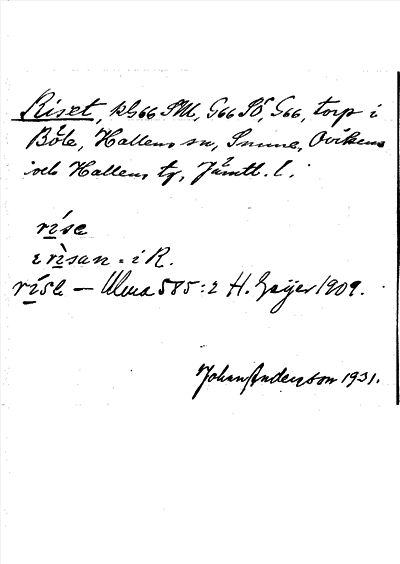 Riset, kG66 SV, G66 SÖ, G66, torp i
Böle, Hallens sn, Sunne, Ovikens
och Hallens tg, Jämtl. l.
rise
i risan = i R.
rise — Ulma 585:2 H. Geijer 1909.
Johan Anderson 1931.